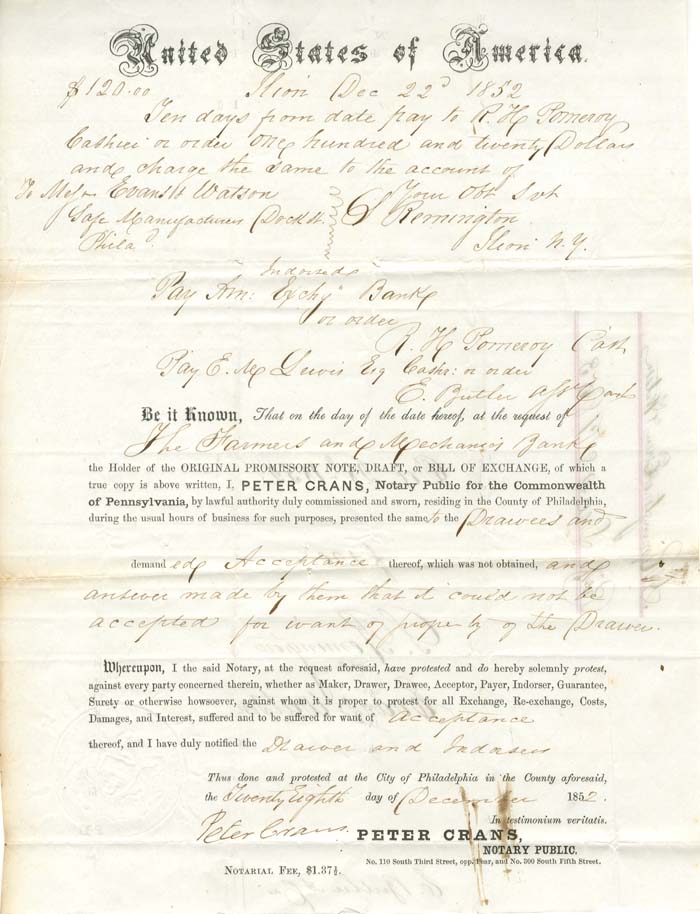 United States of America.
$120.00 Ilion Dec 22d 1852
Ten days from date pay to R. H. Pomeroy
Cashier or order One hundred and twenty Dollars
and charge the same to the account of
To Messrs Evans & Watson Your Obt Svt
Safe Manufacturers Dock St. Remington
Philad. Ilion N.Y.
Indorsed
Pay Am: Exchg. Bank
or order
R. H. Pomeroy Cash
Pay E. M Lewis Esq Cashr: or order
E. Butler Asst Cash
Be it Known, That on the day of the date hereof, at the request of
The Farmers and Mechanics Bank
the Holder of the ORIGINAL PROMISSORY NOTE, DRAFT, or BILL OF EXCHANGE, of which a
true copy is above written, I, PETER CRANS, Notary Public for the Commonwealth
of Pennsylvania, by lawful authority duly commissioned and sworn, residing in the County of Philadelphia,
during the usual hours of business for such purposes, presented the same to the Drawees and
demanded Acceptance thereof, which was not obtained, and
answer made by them that it could not be
accepted for want of property of the Drawer.
Whereupon, I the said Notary, at the request aforesaid, have protested and do hereby solemnly protest,
against every party concerned therein, whether as Maker, Drawer, Drawee, Acceptor, Payer, Indorser, Guarantee,
Surety or otherwise howsoever, against whom it is proper to protest for all Exchange, Re-exchange, Costs,
Damages, and Interest, suffered and to be suffered for want of Acceptance
thereof, and I have duly notified the Drawer and Indorsers
Thus done and protested at the City of Philadelphia in the County aforesaid,
the Twenty Eighth day of December 1852.
In testimonium veritatis.
Peter Crans. PETER CRANS,
NOTARY PUBLIC.
No. 110 South Third Street, opp. Pear, and No. 300 South Fifth Street.
NOTARIAL FEE, $1.37½.